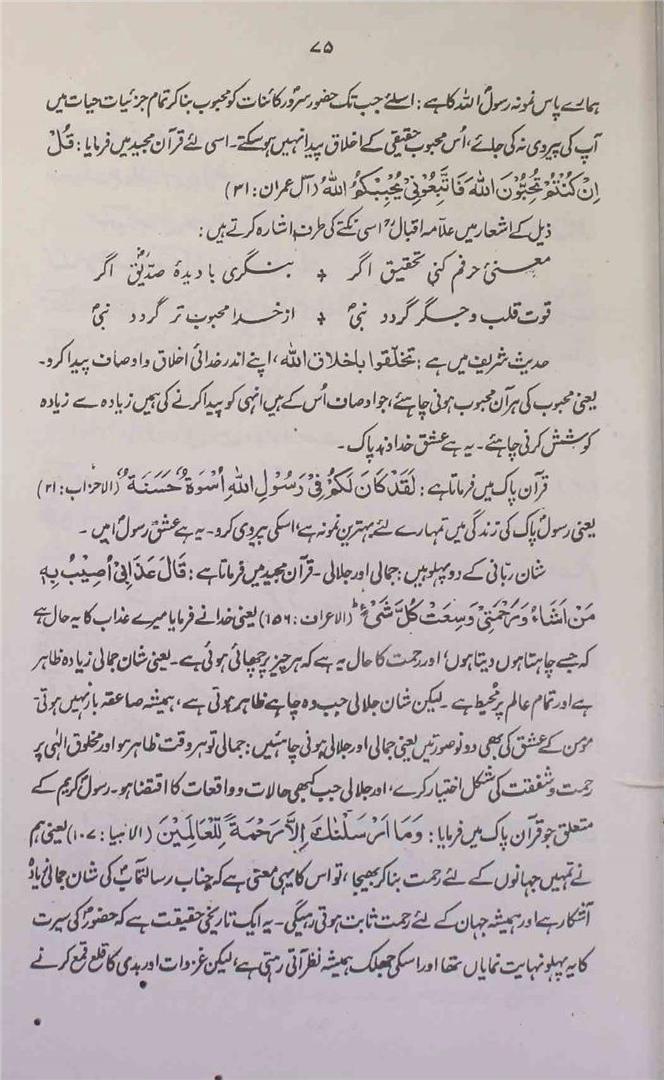 ۷۵
ہمارے پاس نمونہ رسولؐ اللہ کا ہے: اسلئے جب تک حضور سرور کائنات کو محبوب بنا کر تمام جزئیات حیات میں
آپ کی پیروی نہ کی جائے، اُس محبوب حقیقی کے اخلاق پیدا نہیں ہو سکتے۔ اسی لئے قرآن مجید میں فرمایا: قُلْ
اِنْ كُنْتُمْ تُحِبُّوْنَ اللّٰهَ فَاتَّبِعُوْنِىْ يُحْبِبْكُمُ اللّٰهُ (آل عمران: ۳۱)
ذیل کے اشعار میں علامہ اقبالؒ اسی نکتے کی طرف اشارہ کرتے ہیں:
معنیٔ حرفم کنی تحقیق اگر + بنگری با دیدۂ صدّیقؓ اگر
قوت قلب و جگر گردد نبیؐ + از خدا محبوب تر گردد نبیؐ
حدیث شریف میں ہے: تخلّقوا باخلاق الله، اپنے اندر خدائی اخلاق و اوصاف پیدا کرو۔
یعنی محبوب کی ہر آن محبوب ہونی چاہئے، جو اوصاف اُس کے ہیں انہی کو پیدا کرنے کی ہمیں زیادہ سے زیادہ
کوشش کرنی چاہئے۔ یہ ہے عشق خداوند پاک۔
قرآن پاک میں فرماتا ہے: لَقَدْ كَانَ لَكُمْ فِىْ رَسُوْلِ اللّٰهِ اُسْوَةٌ حَسَنَةٌ (الاحزاب: ۲۱)
یعنی رسولؐ پاک کی زندگی میں تمہارے لئے بہترین نمونہ ہے، اسکی پیروی کرو۔ یہ ہے عشق رسولؐ امیں۔
شان ربّانی کے دو پہلو ہیں: جمالی اور جلالی۔ قرآن مجید میں فرماتا ہے: قَالَ عَذَابِىْ اُصِيْبُ بِهٖ
مَنْ اَشَاءُ وَرَحْمَتِىْ وَسِعَتْ كُلَّ شَىْءٍ ط (الاعراف: ۱۵۶) یعنی خدا نے فرمایا میرے عذاب کا یہ حال ہے
کہ جسے چاہتا ہوں دیتا ہوں؛ اور رحمت کا حال یہ ہے کہ ہر چیز پر چھائی ہوئی ہے۔ یعنی شان جمالی زیادہ ظاہر
ہے اور تمام عالم پر محیط ہے۔ لیکن شان جلالی جب وہ چاہے ظاہر ہوتی ہے، ہمیشہ صاعقہ بار نہیں ہوتی۔
مومن کے عشق کی بھی دونو صورتیں یعنی جمالی اور جلالی ہونی چاہئیں: جمالی تو ہر وقت ظاہر ہو اور مخلوق الٰہی پر
رحمت و شفقت کی شکل اختیار کرے، اور جلالی جب کبھی حالات و واقعات کا اقتضا ہو۔ رسولؐ کریم کے
متعلق جو قرآن پاک میں فرمایا: وَمَا اَرْسَلْنٰكَ اِلَّا رَحْمَةً لِّلْعَالَمِيْنَ (الانبیا: ۱۰۷) یعنی ہم
نے تمہیں جہانوں کے لئے رحمت بنا کر بھیجا، تو اس کا یہی معنی ہے کہ جناب رسالتمآبؐ کی شان جمالی زیادہ
آشکار ہے اور ہمیشہ جہان کے لئے رحمت ثابت ہوتی رہیگی۔ یہ ایک تاریخی حقیقت ہے کہ حضورؐ کی سیرت
کا یہ پہلو نہایت نمایاں تھا اور اسکی جھلک ہمیشہ نظر آتی رہتی ہے، لیکن غزوات اور بدی کا قلع قمع کرنے